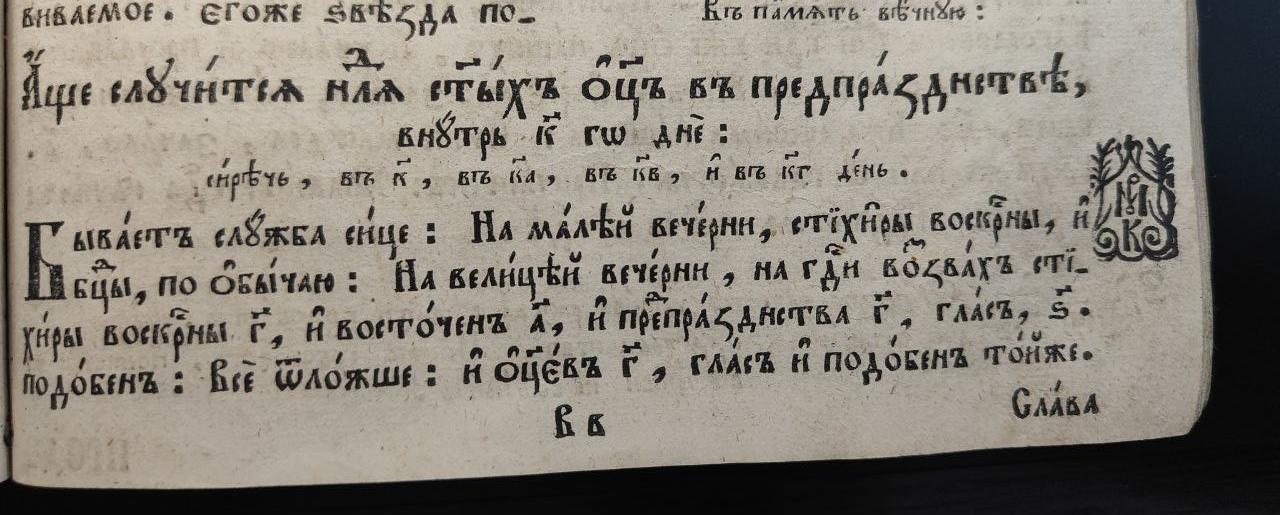 виваемое. єгоже ѕвѣзда по-
Въ памѧть вѣчную:
А҆́ще слꙋчи́тсѧ нлⷣѧ ст҃ы́хъ ѻ҆ц҃ъ въ предпра́зднствѣ,
внꙋ́трь к҃ гѡ днѐ:
си́рѣчь, въ к҃, въ к҃а, въ к҃в, и҆ въ к҃г де́нь.
Быва́етъ слꙋ́жба си́це: На ма́лѣй вече́рни, стїхи̑ры воскрⷭ҇ны, и҆
бцⷣы, по ѻ҆бы́чаю: На вели́цѣй вече́рни, на гдⷭ҇и во̑зва́хъ стї-
хи́ры воскрⷭ҇ны г҃, и҆ восто́ченъ а҃, и҆ преⷣпра́зднства г҃, гла́съ, ѕ҃.
подо́бенъ: Всѐ ѿло́жше: и҆ ѻ҆ц҃є́въ г҃, гла́съ и҆ подо́бенъ то́йже.
В в
Сла́ва